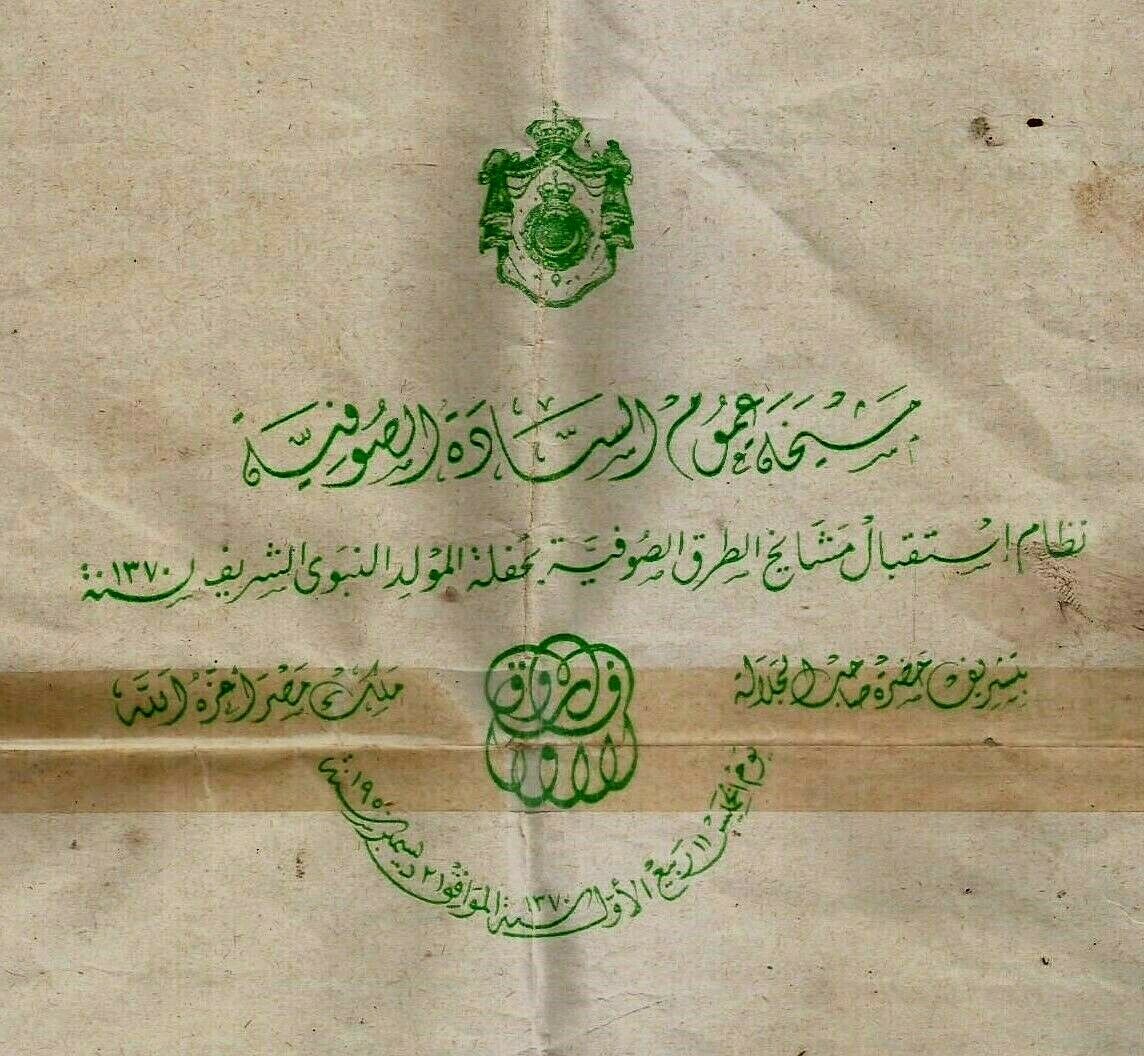 مَشْيَخَة عُمُوم السَّادَة الصُّوفِيَّة
نظام استقبال مشايخ الطرق الصوفية بحفلة المولد النبوى الشريف لسنة ١٣٧٠
بتشريف حضرة صاحب الجلالة
فاروق الاول
ملك مصر أعزه الله
يوم الخميس ١١ ربيع الأول سنة ١٣٧٠ الموافق ٢١ ديسمبر سنة ١٩٥٠